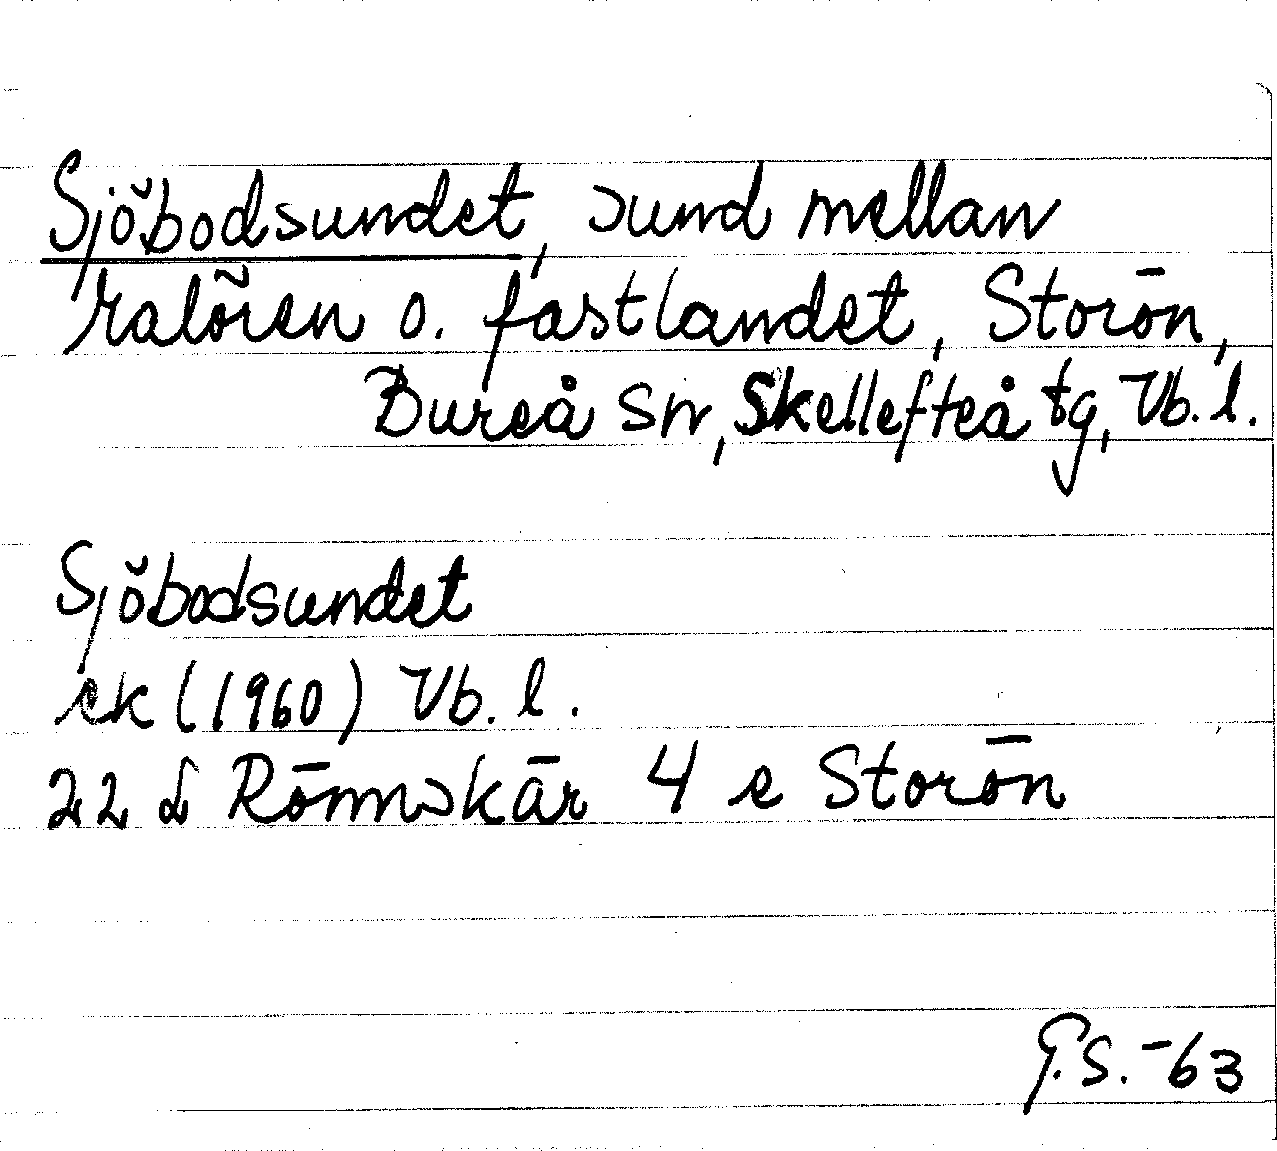 Sjöbodsundet, sund mellan
Halören o. fastlandet, Storön,
Bureå sn, Skellefteå tg, Vb. l.
Sjöbodsundet
ek (1960) Vb. l.
22 d Rönnskär 4 e Storön
G.S. -63